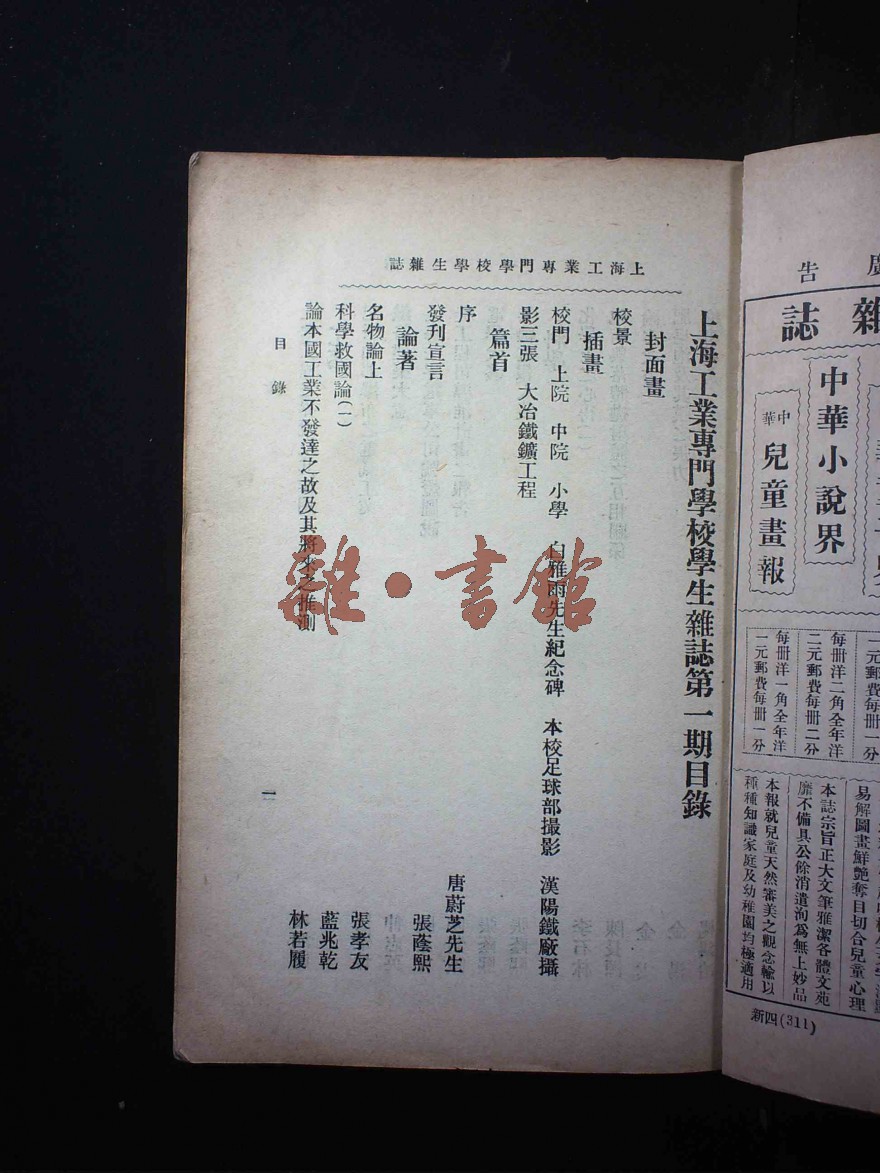 上海工業專門學校學生雜誌
上海工業專門學校學生雜誌第一期目錄
封面畫
校景
插畫
校門　上院　中院　小學　白雅雨先生紀念碑　本校足球部撮影　漢陽鐵廠攝
影三張　大冶鐵鑛工程
篇首
序　唐蔚芝先生
發刊宣言　張蔭熙
論著
名物論上　張孝友
科學救國論(一)　藍兆乾
論本國工業不發達之故及其將來之推測　林若履
目錄
一
雜·書館
廣告
雜誌
中華小說界
中華兒童畫報
一元郵費每冊一分
每冊洋二角全年洋
二元郵費每冊二分
每冊洋一角全年洋
一元郵費每冊一分
易解圖畫鮮艷奪目切合兒童心理
本誌宗旨正大文筆雅潔各體文苑
靡不備具公餘消遣洵為無上妙品
本報就兒童天然審美之觀念輸以
種種知識家庭及幼稚園均極適用
新四(311)